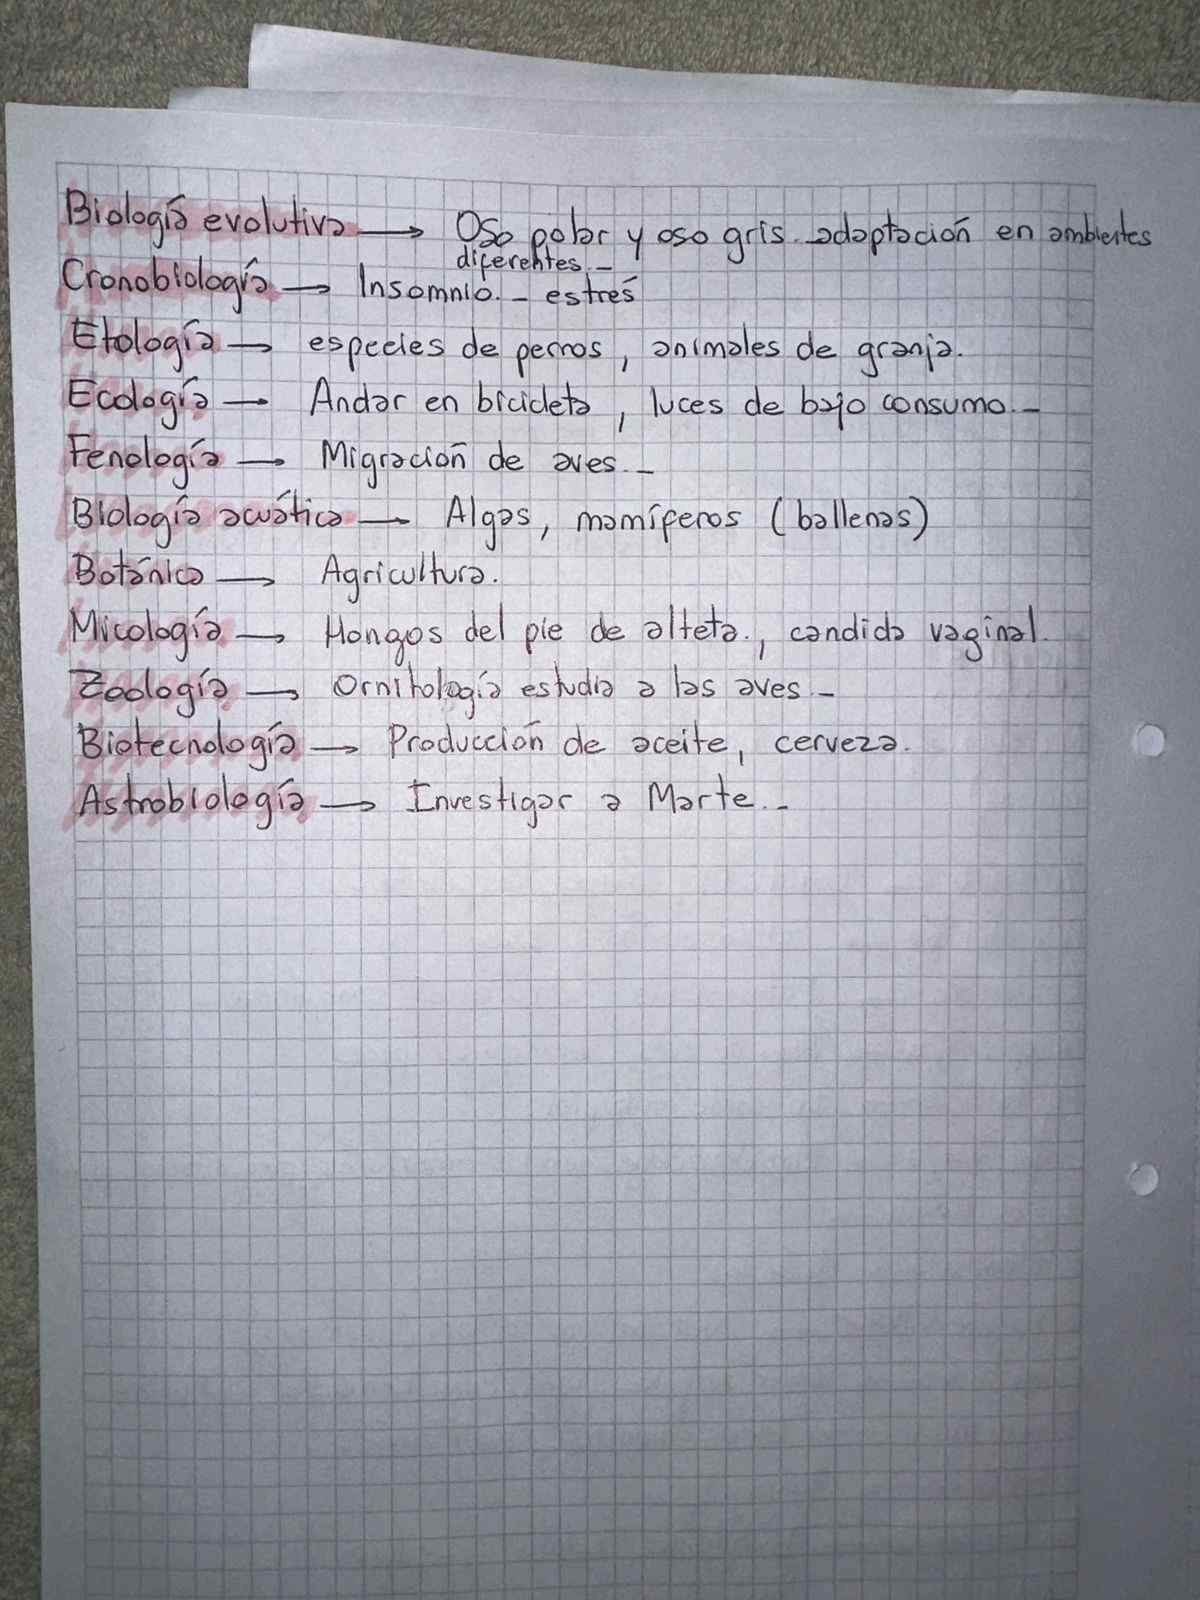 Biología evolutiva → Oso polar y oso gris. adaptación en ambientes
diferentes._
Cronobiología → Insomnio._ estrés
Etología → especies de perros, animales de granja.
Ecología → Andar en bicicleta, luces de bajo consumo._
Fenología → Migración de aves._
Biología acuática → Algas, mamíferos (ballenas)
Botánica → Agricultura.
Micología → Hongos del pie de alteta., candida vaginal.
Zoología → Ornitología estudia a las aves._
Biotecnología → Producción de aceite, cerveza.
Astrobiología → Investigar a Marte._